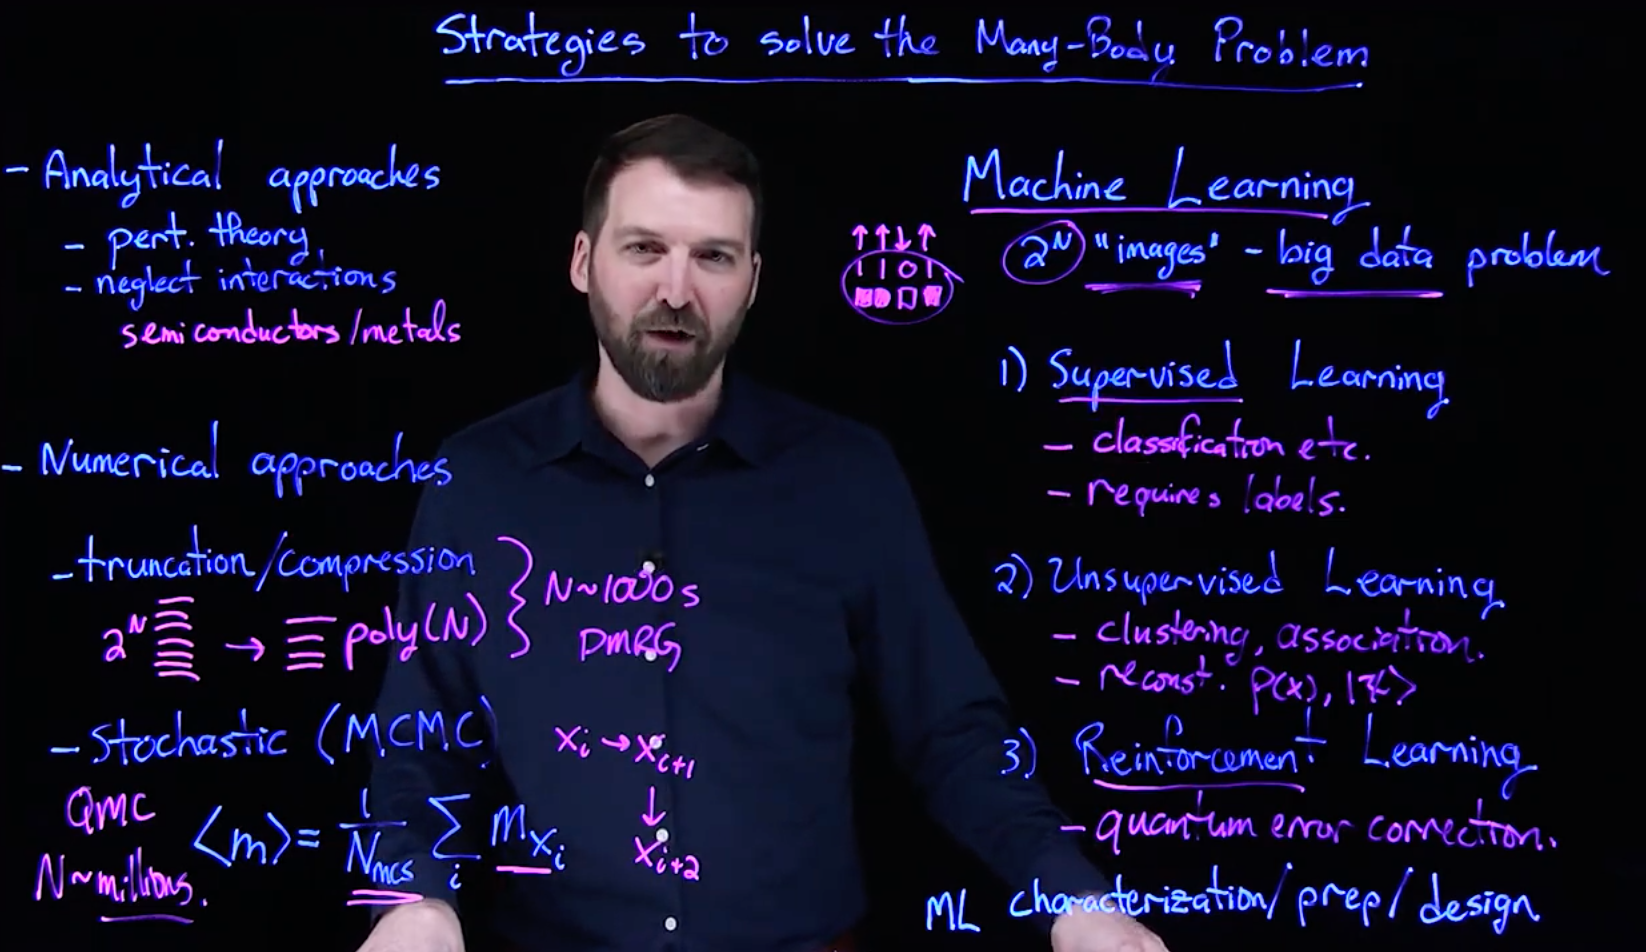 Strategies to solve the Many-Body Problem
- Analytical approaches
- pert. theory
- neglect interactions
semiconductors/metals
- Numerical approaches
- truncation/compression
2^N → poly(N) } N~1000s
DMRG
- Stochastic (MCMC)
x_i → x_{i+1}
↓
x_{i+2}
QMC
N~millions.
⟨m⟩ = 1/N_{MCS} Σ_i m_{x_i}
Machine Learning
↑↑↓↑
1101
2^N "images" - big data problem
1) Supervised Learning
- classification etc.
- requires labels.
2) Unsupervised Learning
- clustering, association.
- reconst. p(x), |ψ⟩
3) Reinforcement Learning
- quantum error correction.
ML characterization/prep/design